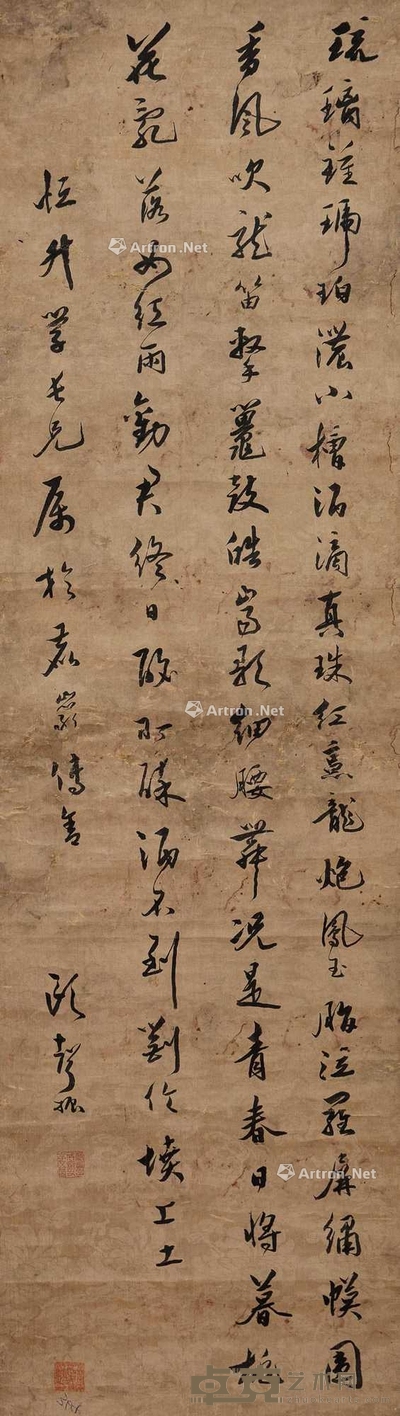 琉璃鍾琥珀濃小槽酒滴真珠紅烹龍炮鳳玉脂泣羅屏繡幙圍
香風吹龍笛擊鼉鼓皓齒歌細腰舞況是青春日將暮桃
花亂落如紅雨勸君終日酩酊醉酒不到劉伶墳上土
恒升學長兄屬於
Artron.Net
Artron.Net
Artron.Net
Artron.Net
卓克艺术网